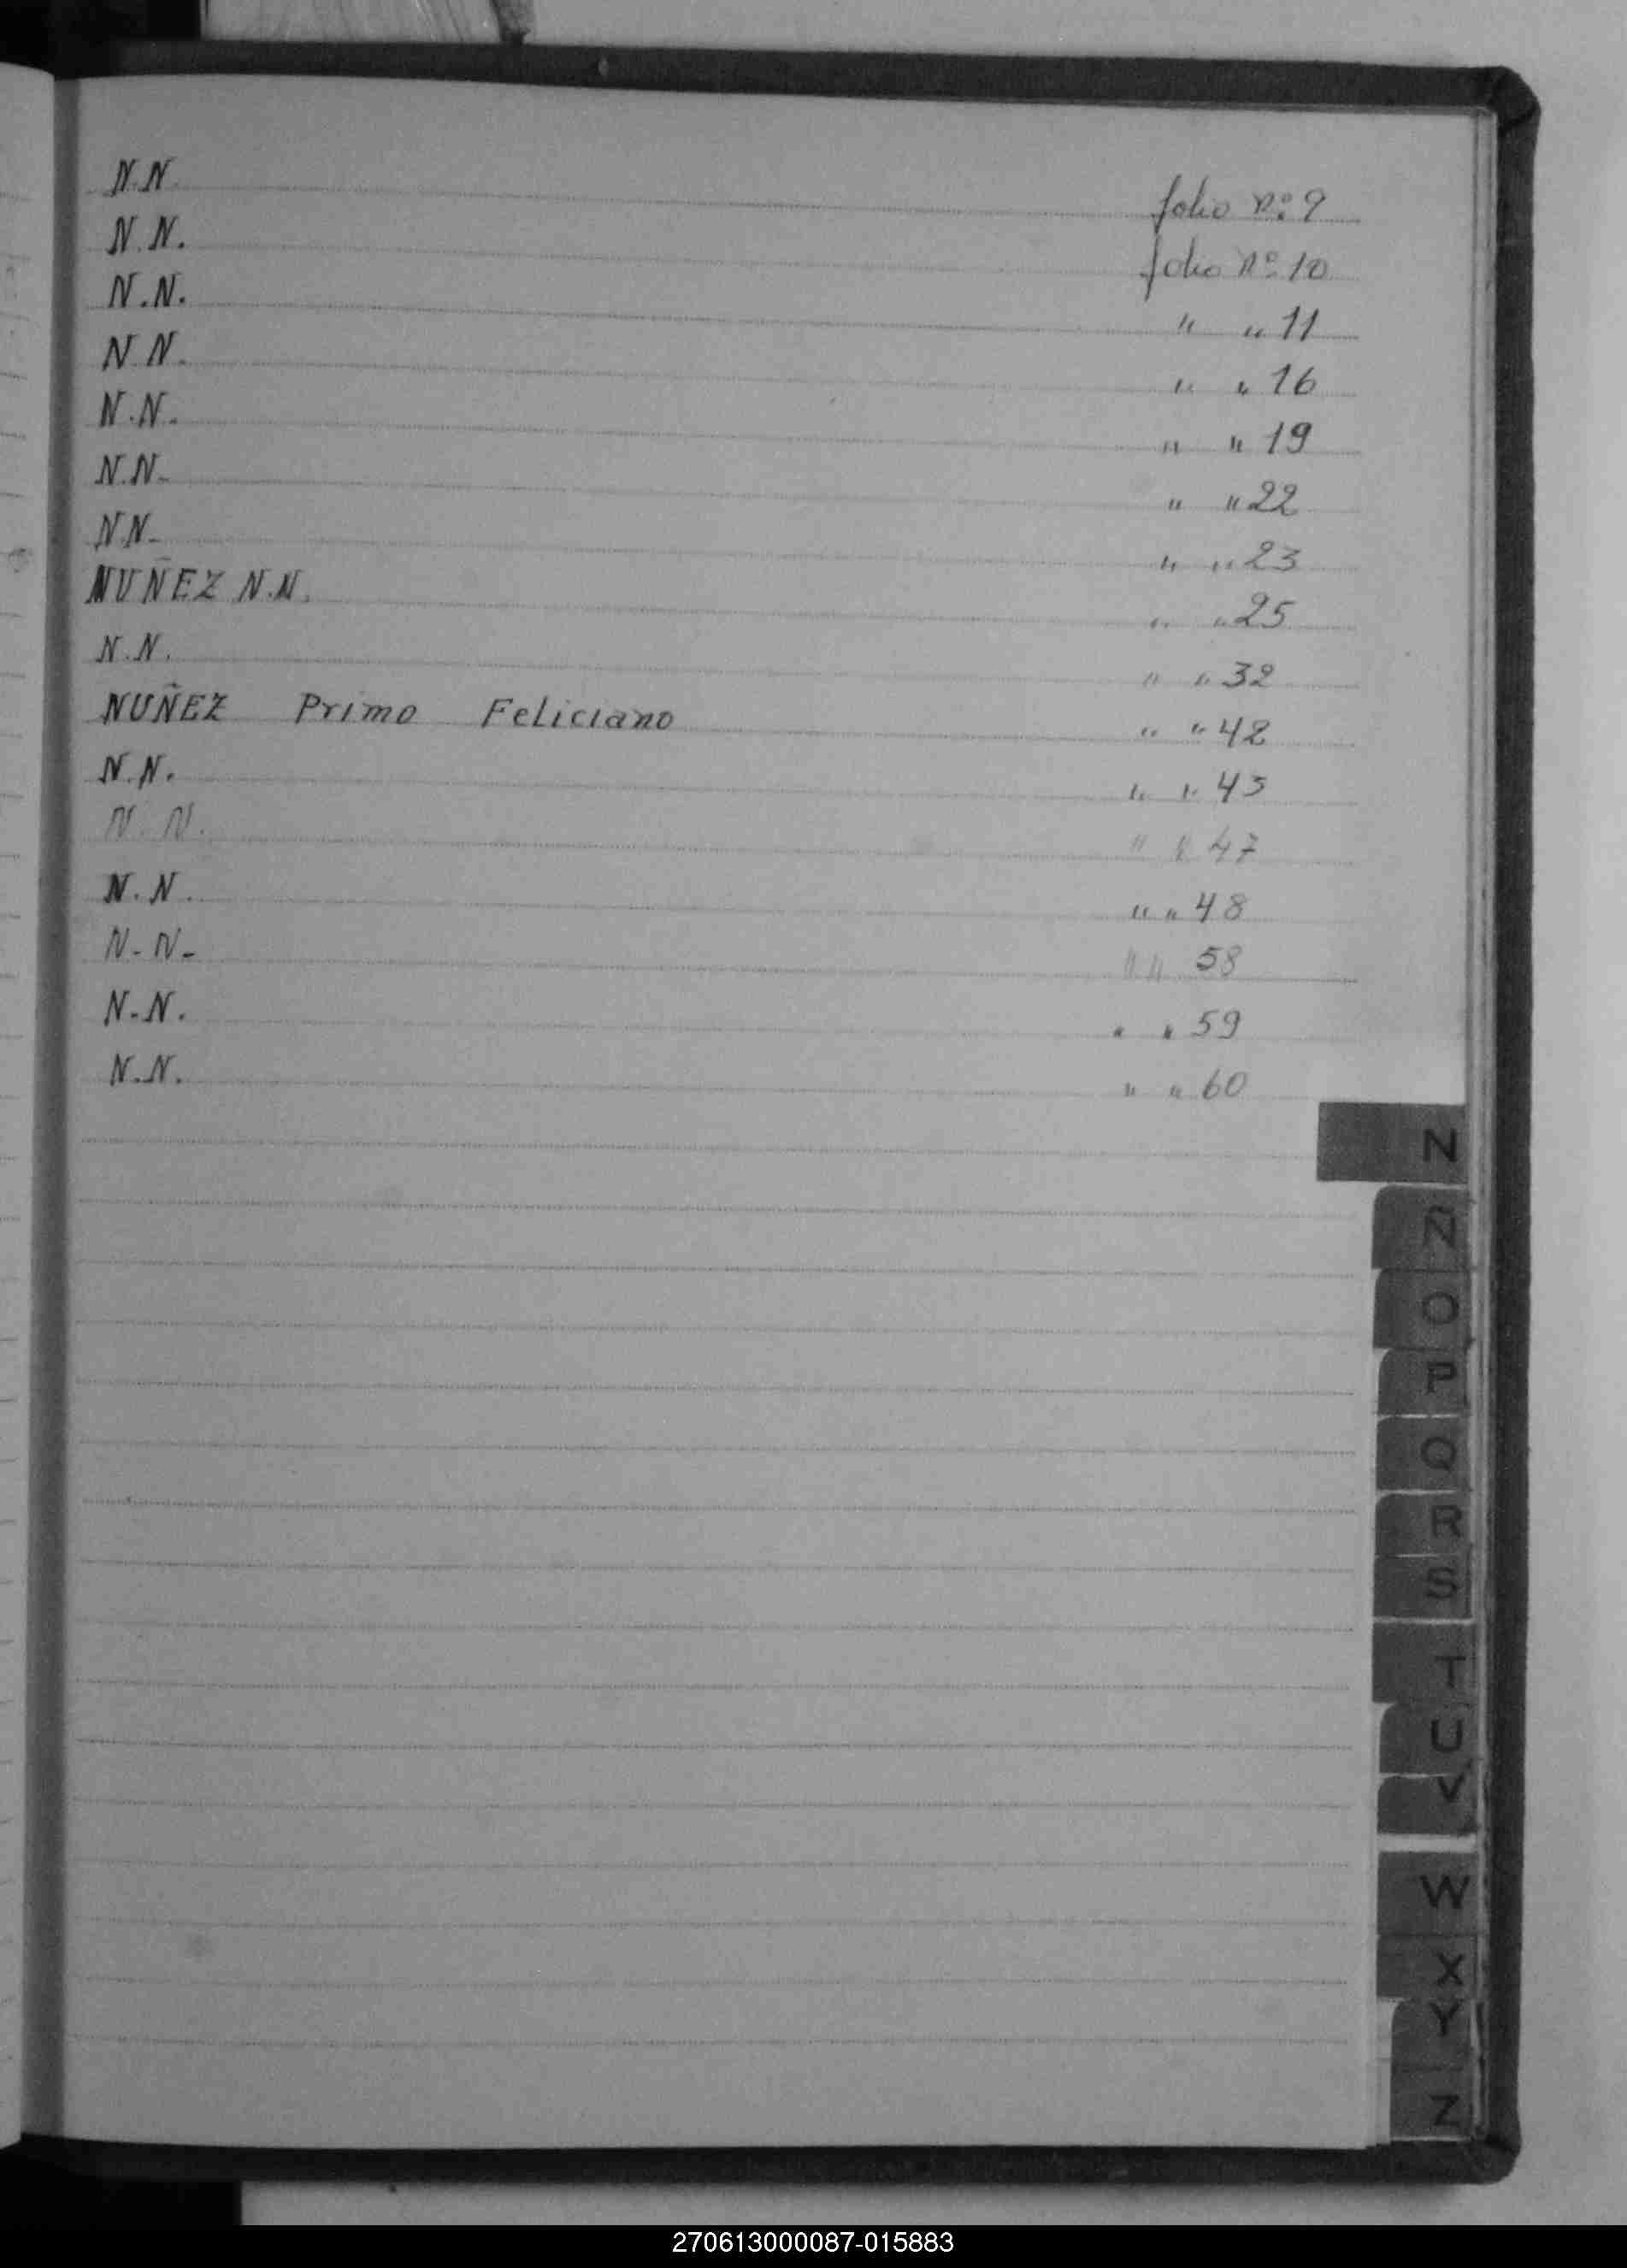 N.N. folio nº 9
N.N. folio nº 10
N.N. " " 11
N N. " " 16
N.N. " " 19
N.N. " " 22
N N. " " 23
NUÑEZ N.N. " " 25
N.N. " " 32
NUÑEZ Primo Feliciano " " 42
N.N. " " 43
N. N. " " 47
N.N. " " 48
N-N- " " 58
N-N. " " 59
N.N. " " 60
N
Ñ
O
P
Q
R
S
T
U
V
W
X
Y
Z
270613000087-015883